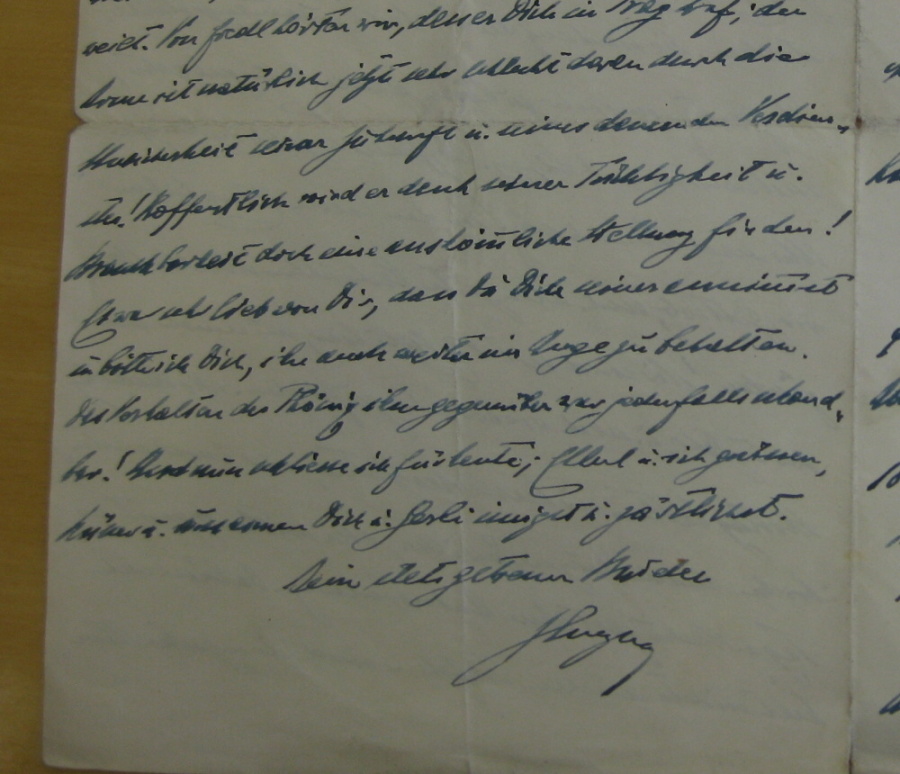 weiss. Von Fredl hörten wir, dass er Dich in Prag traf; der
Arme ist natürlich jetzt sehr schlecht daran durch die
Unsicherheit seiner Zukunft u. seines dauernden Verdien-
stes! Hoffentlich wird er dank seiner Tüchtigkeit u.
Brauchbarkeit doch eine auskömmliche Stellung finden!
Es war sehr lieb von Dir, dass Du Dich seiner annimmst
u. bitte ich Dich, ihn auch weiter im Auge zu behalten.
Das Verhalten der ihm gegenüber war jedenfalls schand-
bar! Und nun schliesse ich für heute; u. ich grüssen,
küssen u. umarmen Dich u. Gerti innigst u. zärtlichst.
Dein stets getreuer Bruder